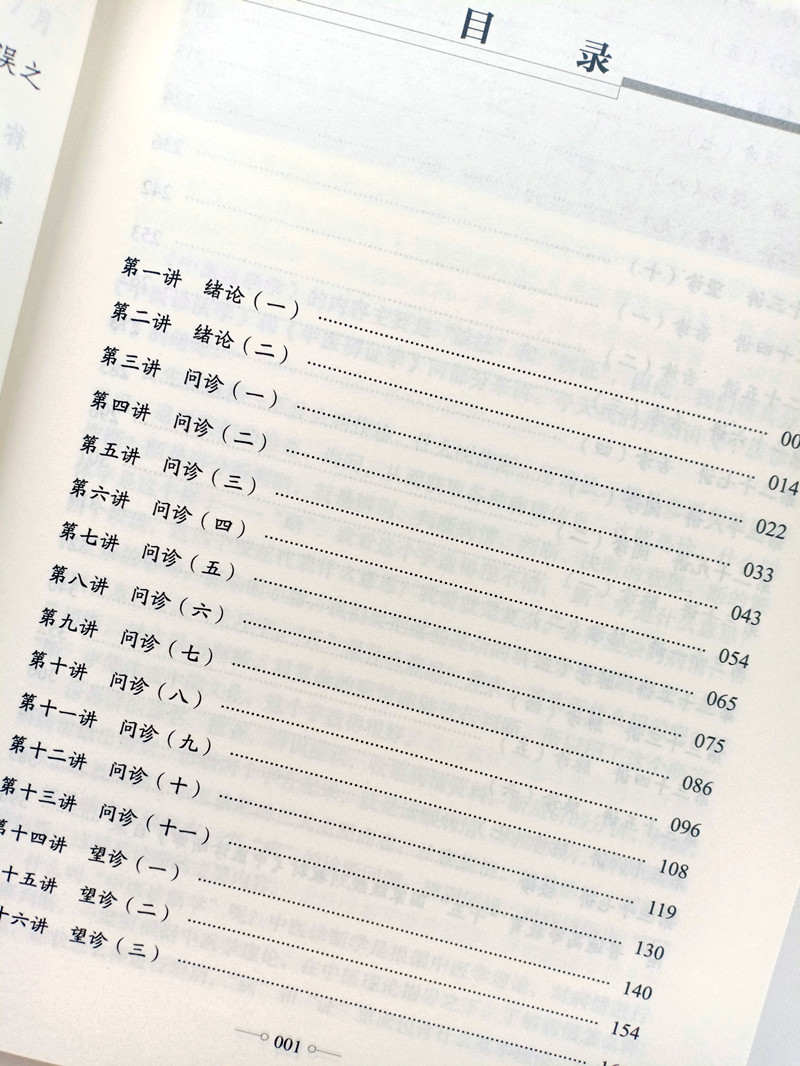 误之
目 录
第一讲 绪论（一） ........ 00
第二讲 绪论（二） ........ 014
第三讲 问诊（一） ........ 022
第四讲 问诊（二） ........ 033
第五讲 问诊（三） ........ 043
第六讲 问诊（四） ........ 054
第七讲 问诊（五） ........ 065
第八讲 问诊（六） ........ 075
第九讲 问诊（七） ........ 086
第十讲 问诊（八） ........ 096
第十一讲 问诊（九） ........ 108
第十二讲 问诊（十） ........ 119
第十三讲 问诊（十一） ........ 130
第十四讲 望诊（一） ........ 140
十五讲 望诊（二） ........ 154
十六讲 望诊（三） ........
001